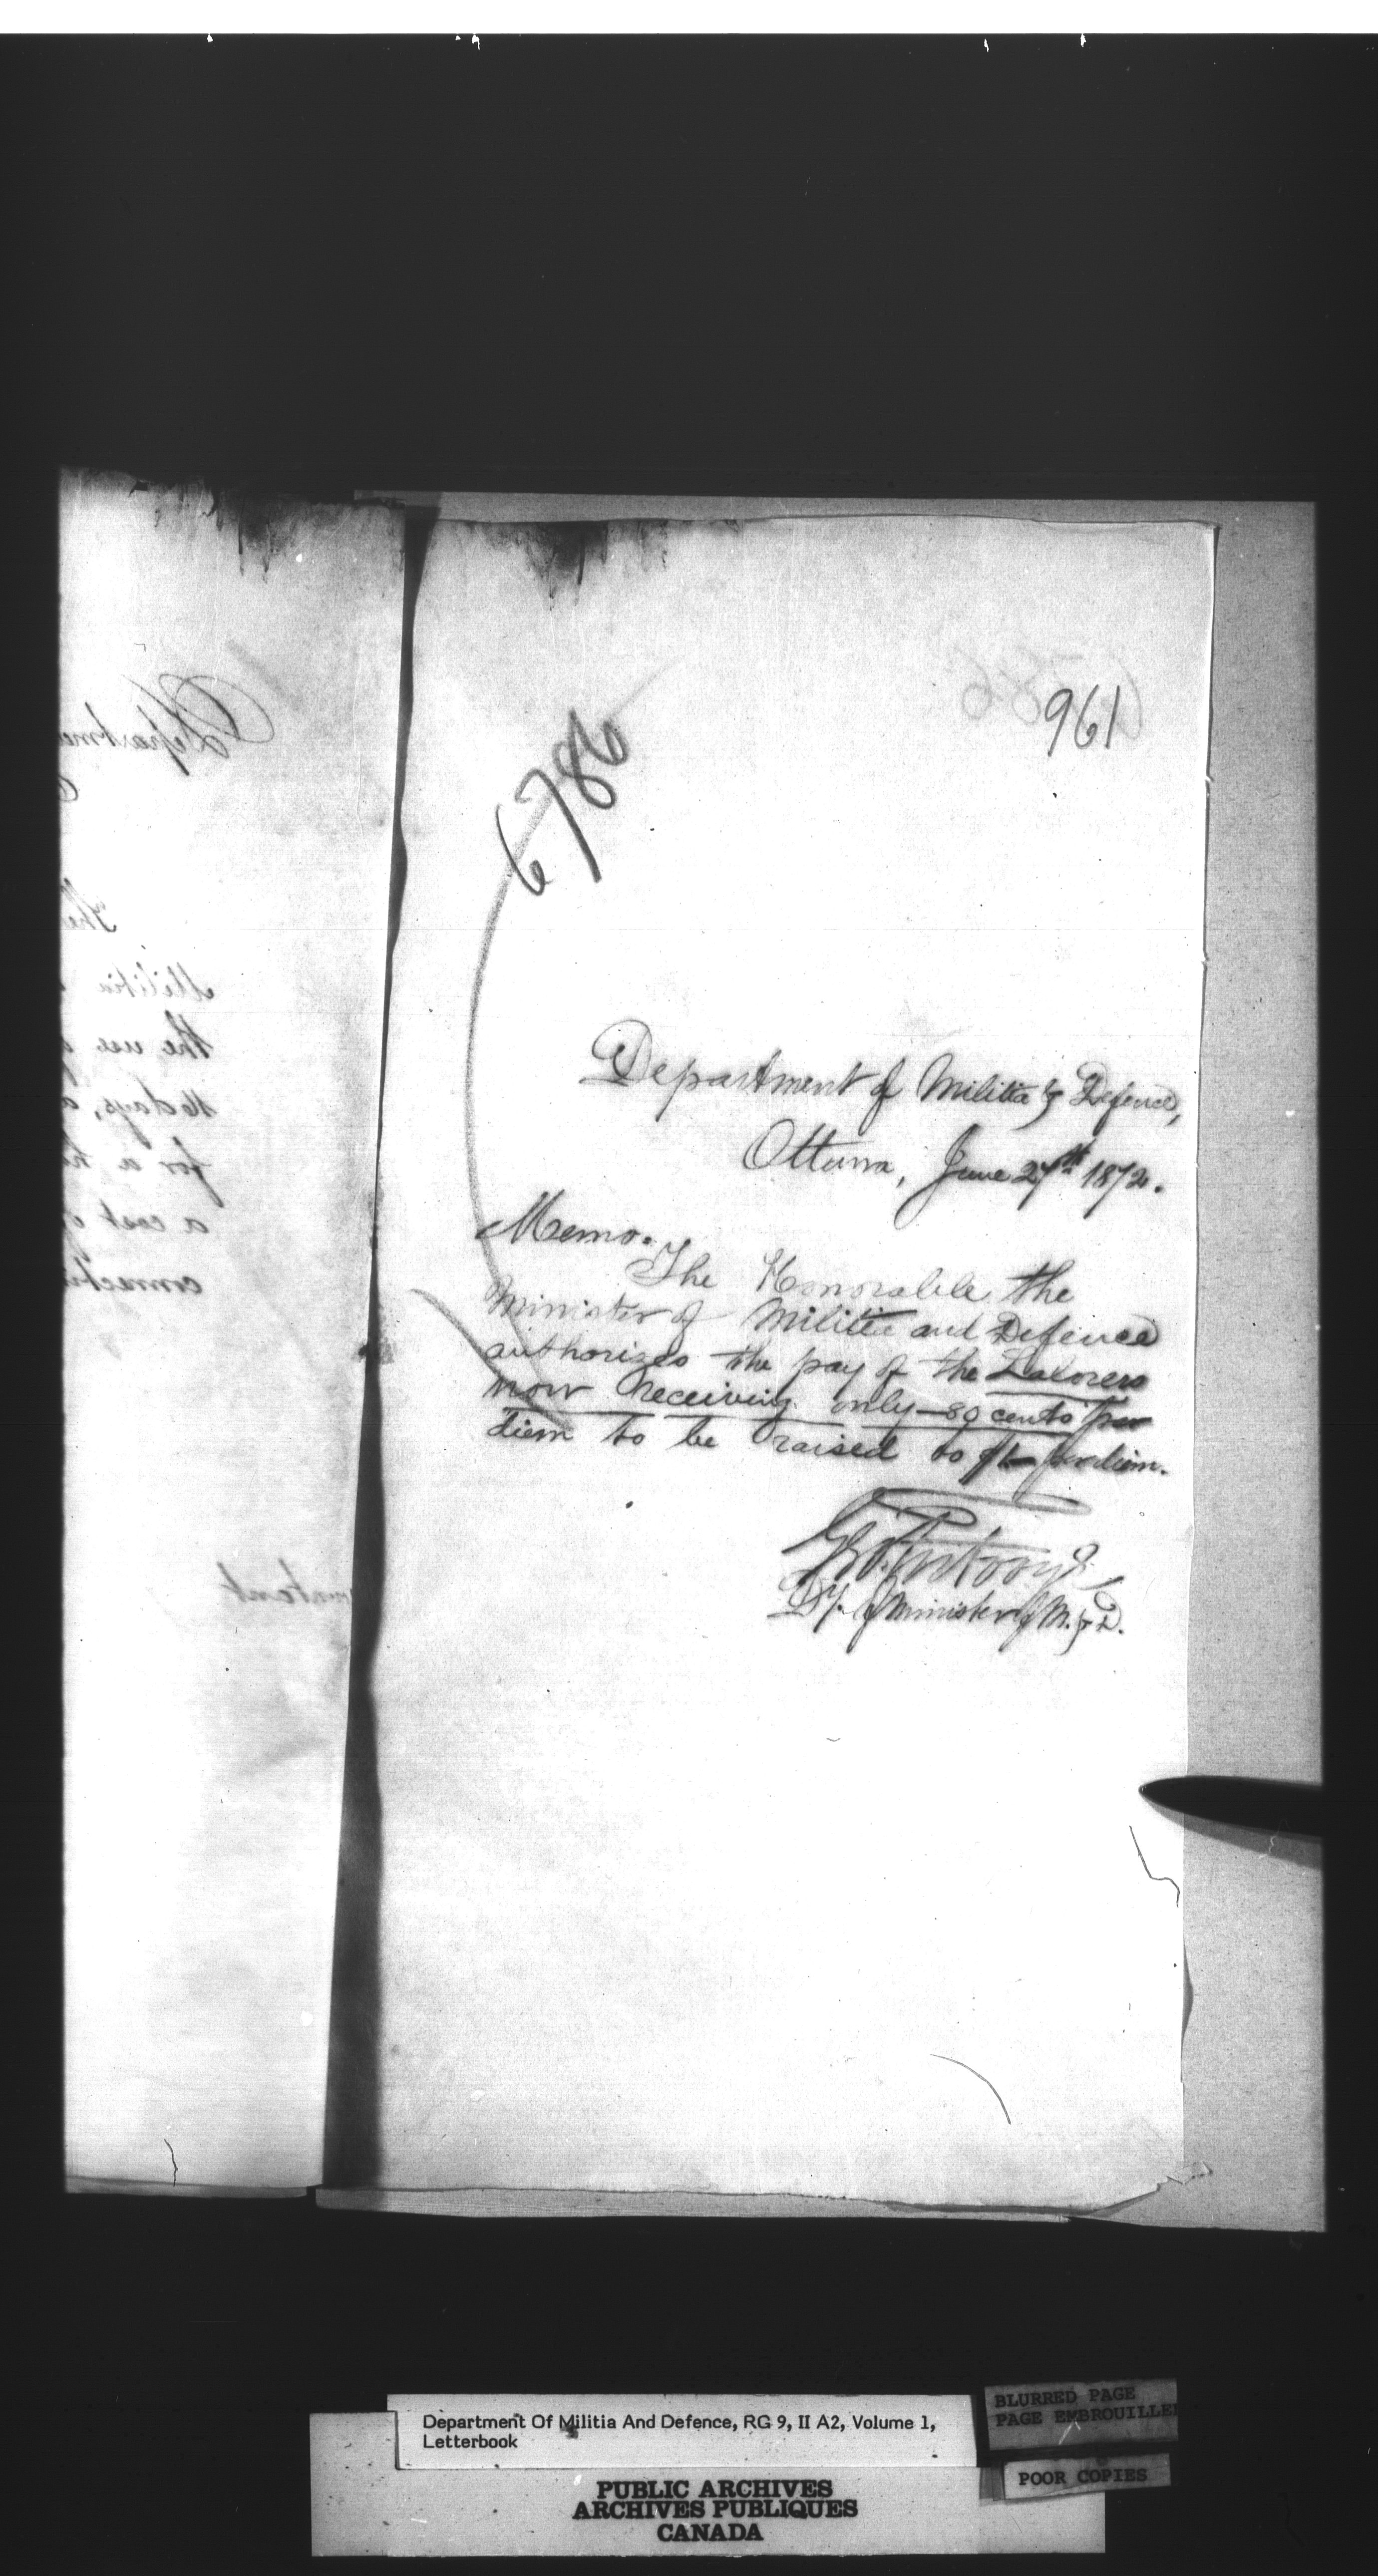 961
6786
Department of Militia & Defence,
Ottawa, June 27th 1872.
Memo.
The Honorable the
Minister of Militia and Defence
authorizes the pay of the Laborers
now receiving only 80 cents per
diem to be raised to $1 per diem.
Dy. of Minister of M. & D.
Departme
The
Militia
the use
10 days, a
for a
a cost of
connecti
Department Of Militia And Defence, RG 9, II A2, Volume 1,
Letterbook
BLURRED PAGE
PAGE EMBROUILLEE
POOR COPIES
PUBLIC ARCHIVES
ARCHIVES PUBLIQUES
CANADA